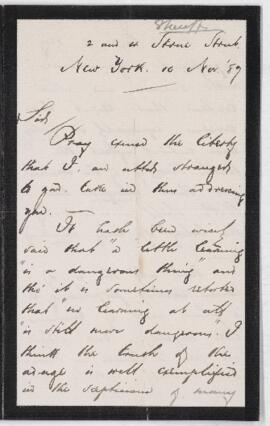 2 and 4 Stone Street.
New York. 10 Nov. '89
Sir,
Pray excuse the liberty
that I, an utter stranger
to you. take in thus addressing
you. —
It hath been wisely
said that "a little learning
"is a dangerous thing" and
tho' it is sometimes retorted
that "no learning at all
"is still more dangerous". I
think the truth of the
adage is well exemplified
in the scepticism of many